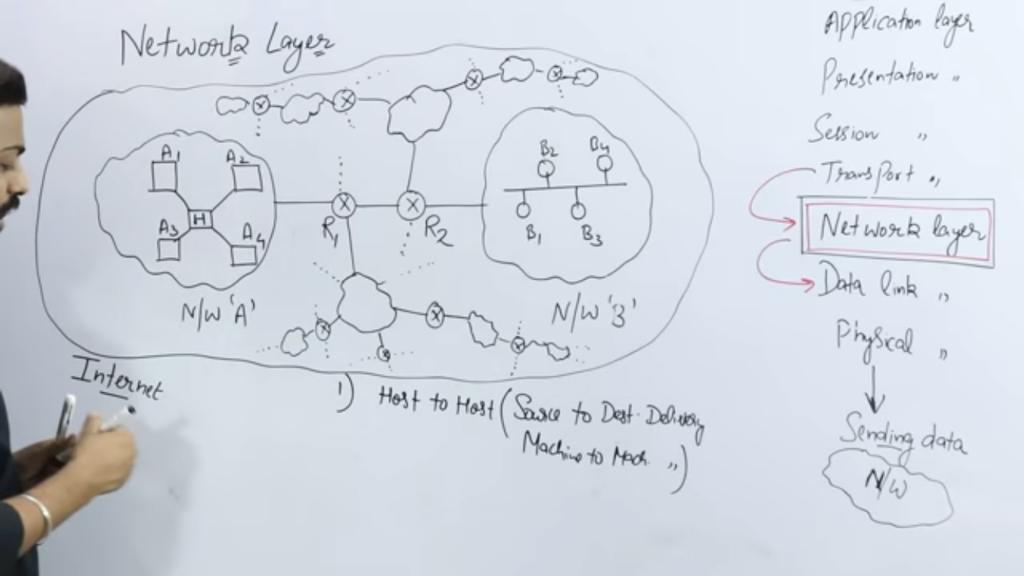 Network Layer
A1
A2
H
A3
A4
N/W 'A'
R1
R2
B2
B4
B1
B3
N/W 'B'
Internet
1) Host to Host (Source to Dest. Delivery
Machine to Mach. ")
Application layer
Presentation "
Session "
Transport "
Network layer
Data link "
Physical "
Sending data
N/W